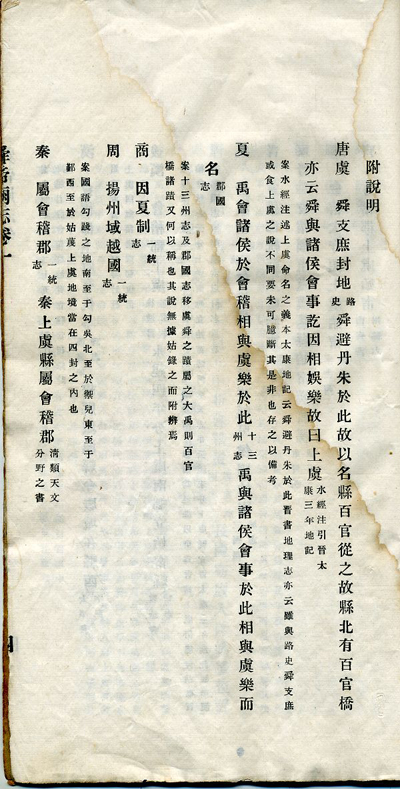 附說明
唐虞 舜支庶封地路史舜避丹朱於此故以名縣百官從之故縣北有百官橋
亦云舜與諸侯會事訖因相娛樂故曰上虞水經注引晉太康三年地記
案水經注述上虞命名之義本太康地記云舜避丹朱於此晉書地理志亦云雖與路史舜支庶
或食上虞之說不同要未可臆斷其是非也存之以備考
夏 禹會諸侯於會稽相與虞樂於此十三州志禹與諸侯會事於此相與虞樂而
名郡國志
案十三州志及郡國志移虞舜之蹟屬之大禹則百官
橋諸蹟又何以稱也其說無據姑錄之而附辨焉
商 因夏制一統志
周 揚州域越國一統志
案國語勾踐之地南至于勾吳北至於禦兒東至于
鄞西至於姑蔑上虞地境當在四封之內也
秦 屬會稽郡一統志秦上虞縣屬會稽郡清類天文分野之書